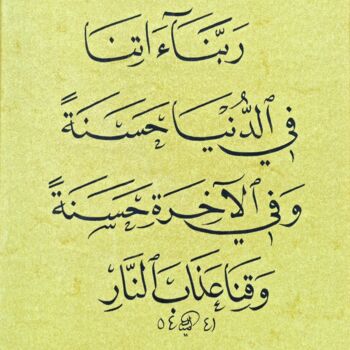 رَبَّنَآ ءَاتِنَا
فِي ٱلدُّنْيَا حَسَنَةً
وَفِي ٱلْآخِرَةِ حَسَنَةً
وَقِنَا عَذَابَ ٱلنَّارِ